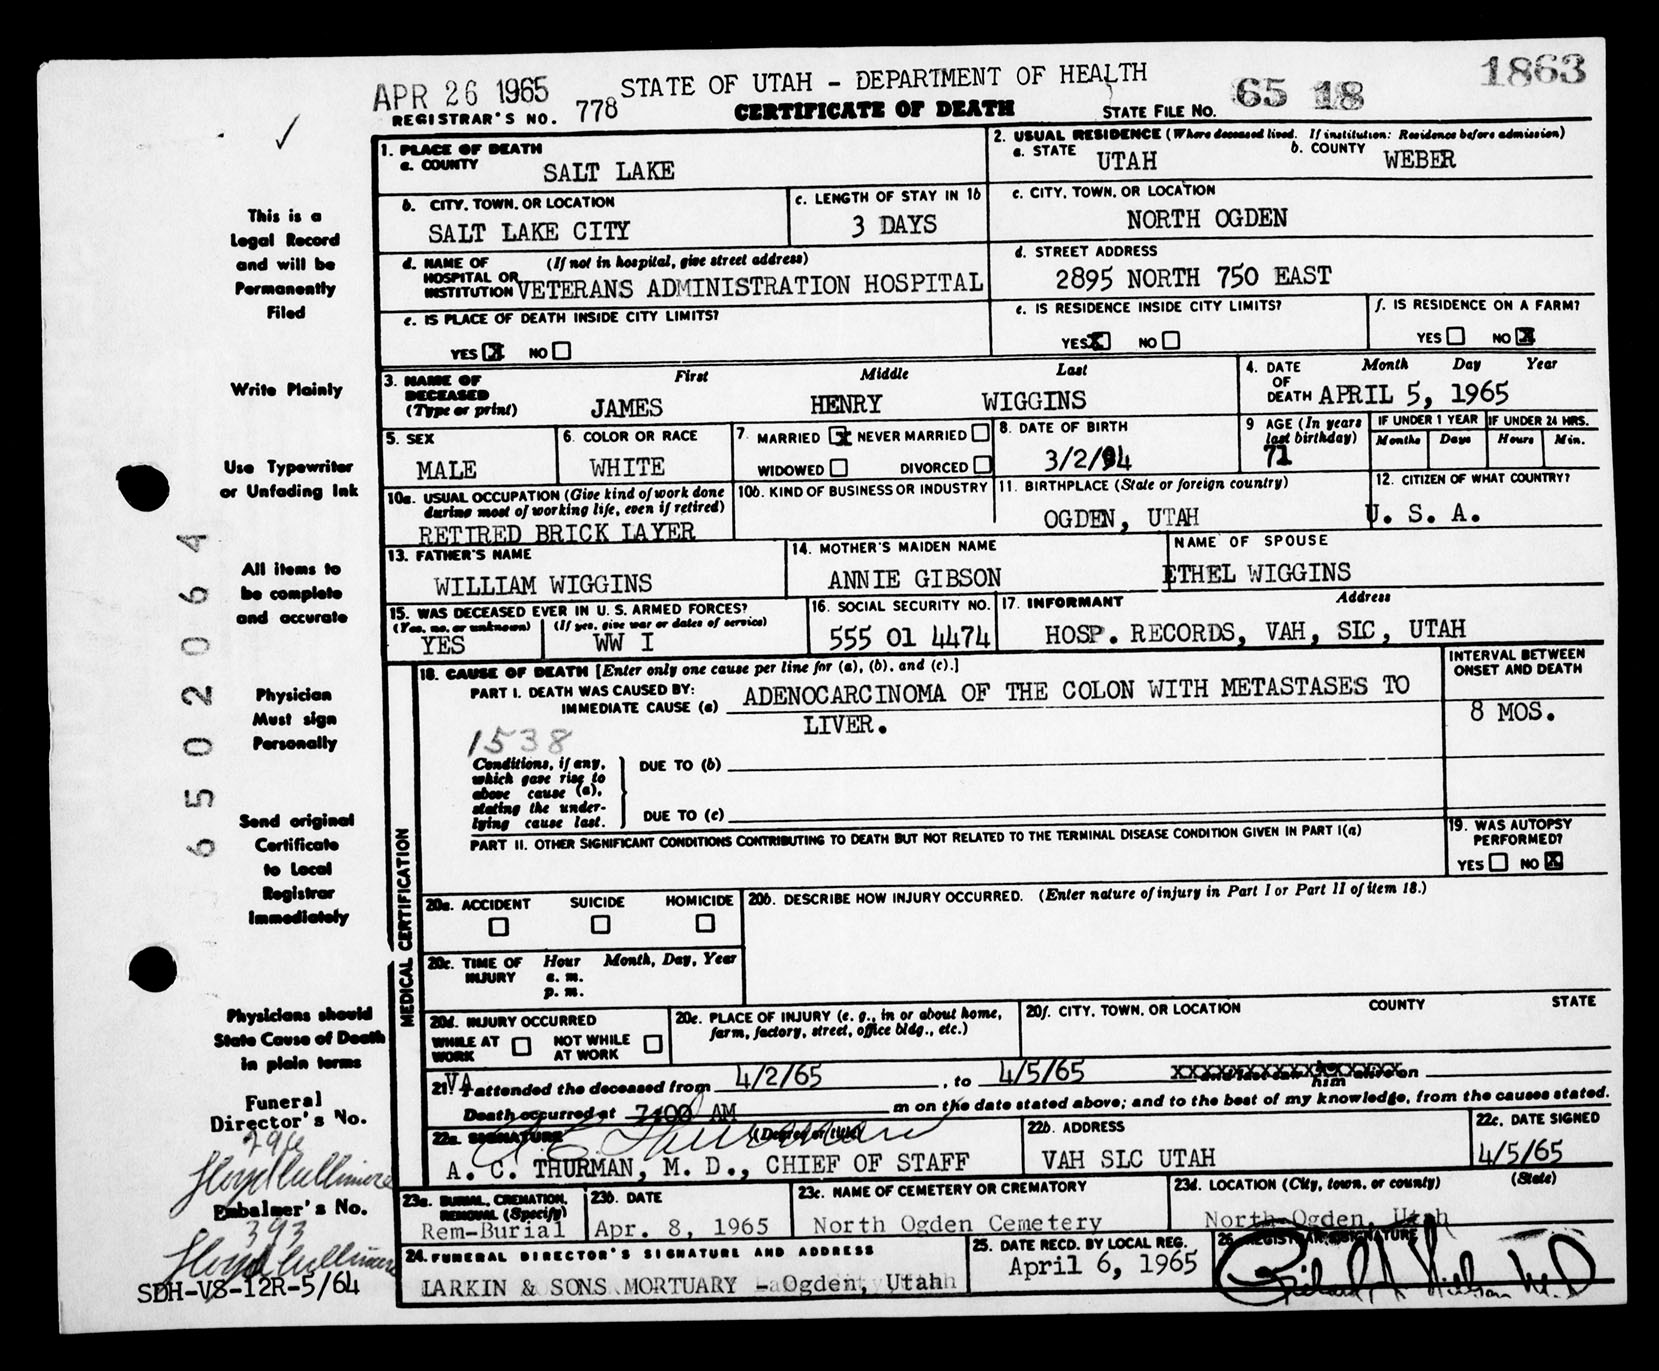 APR 26 1965 STATE OF UTAH - DEPARTMENT OF HEALTH 1863
REGISTRAR'S NO. 778 CERTIFICATE OF DEATH STATE FILE NO. 65 18
1. PLACE OF DEATH
a. COUNTY SALT LAKE
2. USUAL RESIDENCE (Where deceased lived. If institution: Residence before admission)
a. STATE UTAH b. COUNTY WEBER
b. CITY, TOWN, OR LOCATION
SALT LAKE CITY
c. LENGTH OF STAY IN 1b
3 DAYS
c. CITY, TOWN, OR LOCATION
NORTH OGDEN
d. NAME OF (If not in hospital, give street address)
HOSPITAL OR
INSTITUTION VETERANS ADMINISTRATION HOSPITAL
d. STREET ADDRESS
2895 NORTH 750 EAST
e. IS PLACE OF DEATH INSIDE CITY LIMITS?
YES X NO
e. IS RESIDENCE INSIDE CITY LIMITS?
YES X NO
f. IS RESIDENCE ON A FARM?
YES NO X
3. NAME OF DECEASED (Type or print)
First Middle Last
JAMES HENRY WIGGINS
4. DATE OF DEATH Month Day Year
APRIL 5, 1965
5. SEX
MALE
6. COLOR OR RACE
WHITE
7. MARRIED X NEVER MARRIED
WIDOWED DIVORCED
8. DATE OF BIRTH
3/2/94
9 AGE (In years last birthday)
71
IF UNDER 1 YEAR IF UNDER 24 HRS.
Months Days Hours Min.
10a. USUAL OCCUPATION (Give kind of work done
during most of working life, even if retired)
RETIRED BRICK LAYER
10b. KIND OF BUSINESS OR INDUSTRY
11. BIRTHPLACE (State or foreign country)
OGDEN, UTAH
12. CITIZEN OF WHAT COUNTRY?
U. S. A.
13. FATHER'S NAME
WILLIAM WIGGINS
14. MOTHER'S MAIDEN NAME
ANNIE GIBSON
NAME OF SPOUSE
ETHEL WIGGINS
15. WAS DECEASED EVER IN U. S. ARMED FORCES?
(Yes, no, or unknown) (If yes, give war or dates of service)
YES WW I
16. SOCIAL SECURITY NO.
555 01 4474
17. INFORMANT Address
HOSP. RECORDS, VAH, SIC, UTAH
MEDICAL CERTIFICATION
18. CAUSE OF DEATH [Enter only one cause per line for (a), (b), and (c).]
INTERVAL BETWEEN
ONSET AND DEATH
PART I. DEATH WAS CAUSED BY:
IMMEDIATE CAUSE (a) ADENOCARCINOMA OF THE COLON WITH METASTASES TO
LIVER.
8 MOS.
1538
Conditions, if any,
which gave rise to
above cause (a),
stating the under-
lying cause last.
DUE TO (b)
DUE TO (c)
PART II. OTHER SIGNIFICANT CONDITIONS CONTRIBUTING TO DEATH BUT NOT RELATED TO THE TERMINAL DISEASE CONDITION GIVEN IN PART I(a)
19. WAS AUTOPSY
PERFORMED?
YES NO X
20a. ACCIDENT SUICIDE HOMICIDE
20b. DESCRIBE HOW INJURY OCCURRED. (Enter nature of injury in Part I or Part II of item 18.)
20c. TIME OF INJURY Hour Month, Day, Year
a. m.
p. m.
20d. INJURY OCCURRED
WHILE AT WORK NOT WHILE AT WORK
20e. PLACE OF INJURY (e. g., in or about home,
farm, factory, street, office bldg., etc.)
20f. CITY, TOWN, OR LOCATION COUNTY STATE
21. VA attended the deceased from 4/2/65, to 4/5/65 him on
Death occurred at 7:00 AM m on the date stated above; and to the best of my knowledge, from the causes stated.
22a. SIGNATURE (Degree or title)
A. C. THURMAN, M. D., CHIEF OF STAFF
22b. ADDRESS
VAH SLC UTAH
22c. DATE SIGNED
4/5/65
23a. BURIAL, CREMATION,
REMOVAL (Specify)
Rem-Burial
23b. DATE
Apr. 8, 1965
23c. NAME OF CEMETERY OR CREMATORY
North Ogden Cemetery
23d. LOCATION (City, town, or county) (State)
North Ogden, Utah
24. FUNERAL DIRECTOR'S SIGNATURE AND ADDRESS
LARKIN & SONS MORTUARY - Ogden, Utah
25. DATE RECD. BY LOCAL REG.
April 6, 1965
26. REGISTRAR'S SIGNATURE
This is a
Legal Record
and will be
Permanently
Filed
Write Plainly
Use Typewriter
or Unfading Ink
All items to
be complete
and accurate
Physician
Must sign
Personally
Send original
Certificate
to Local
Registrar
Immediately
Physicians should
State Cause of Death
in plain terms
Funeral
Director's No.
296
Floyd Cullimore
Embalmer's No.
393
Floyd Cullimore
SDH-VS-12R-5/64
6502064